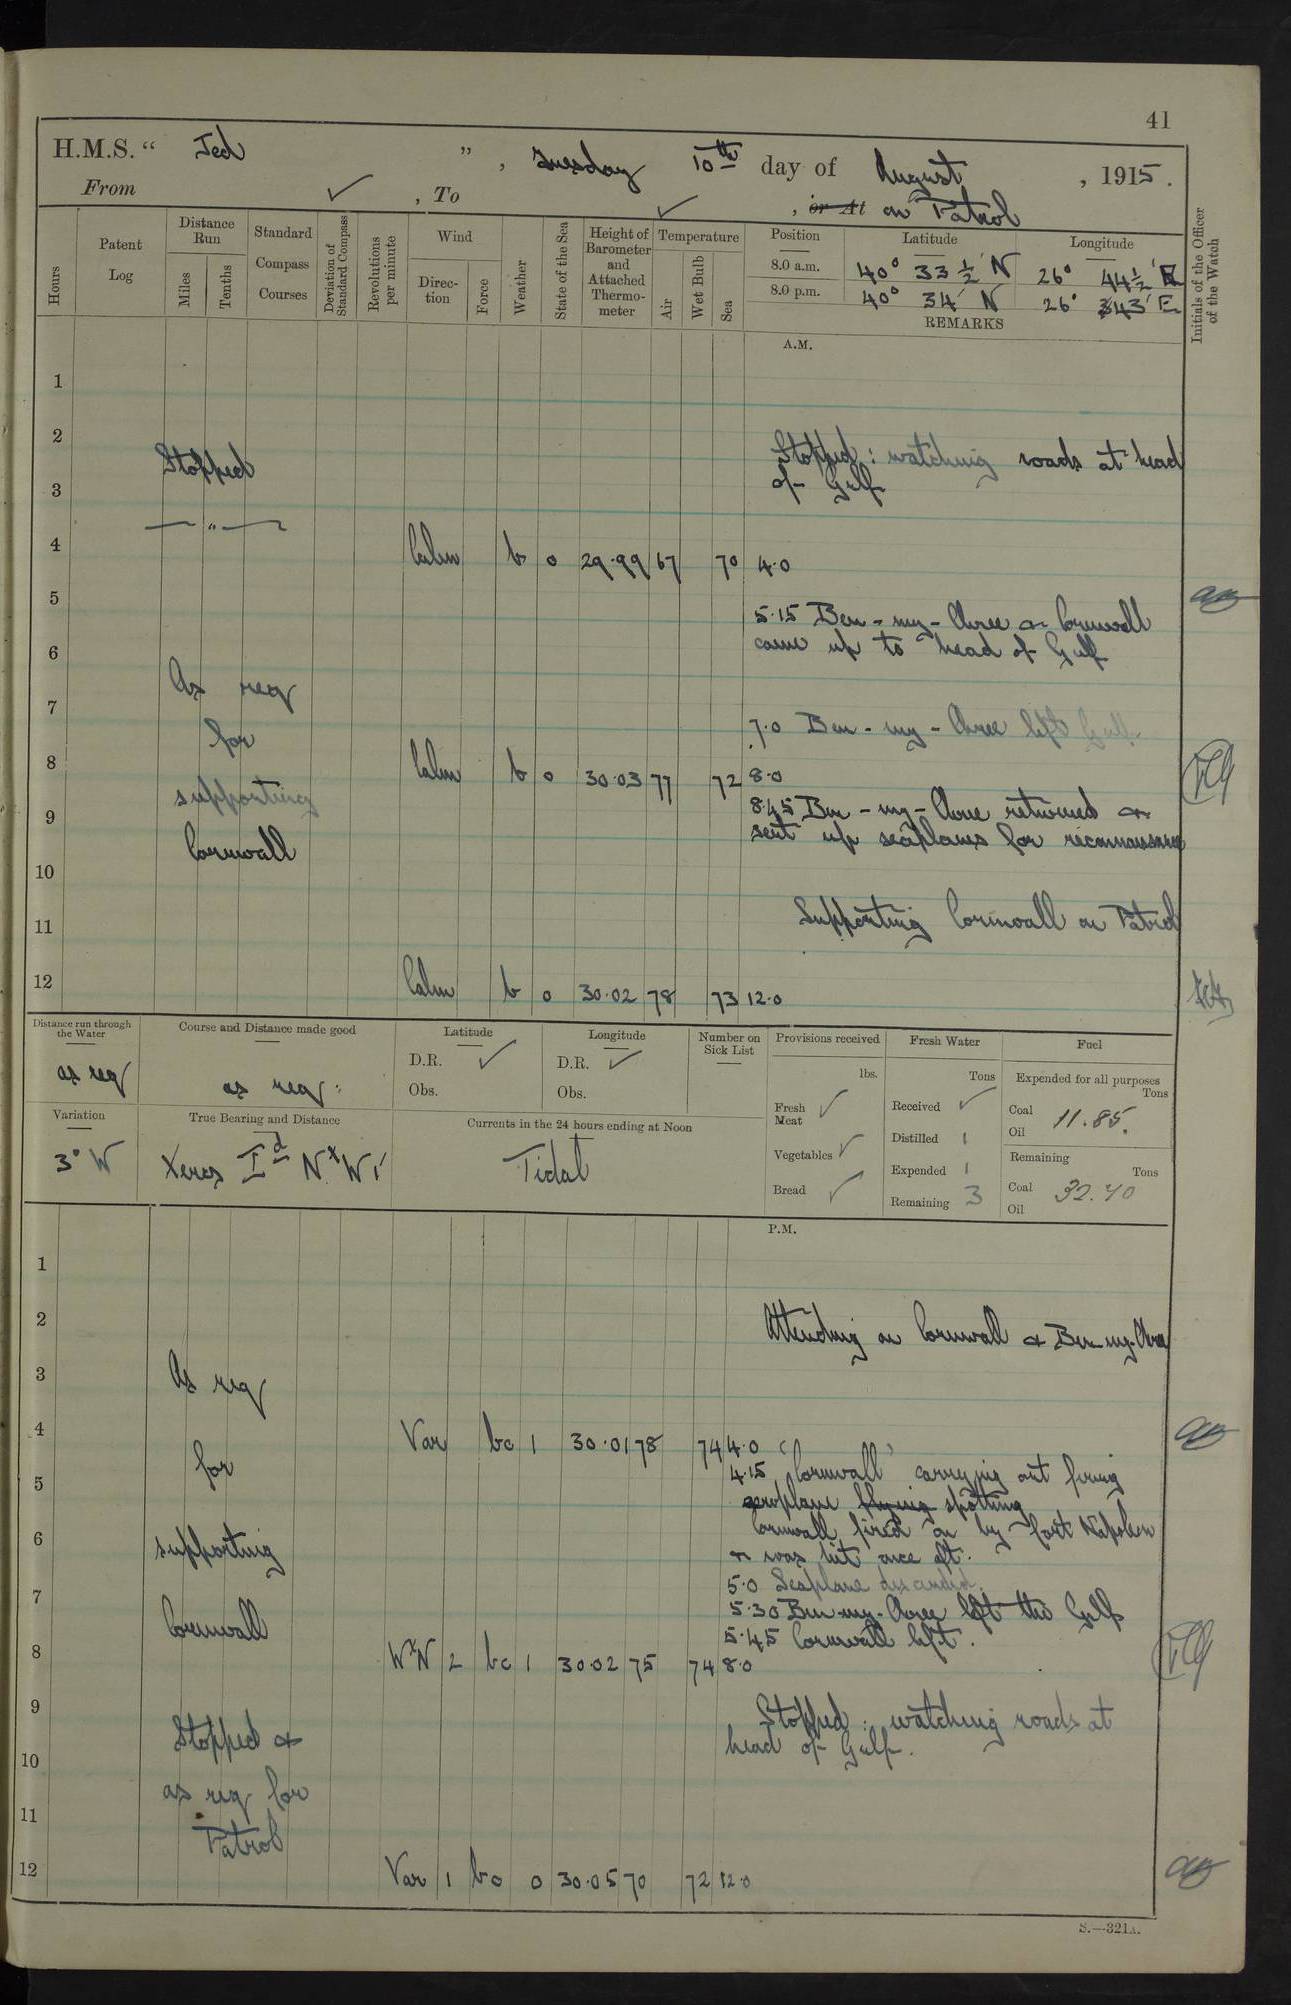 41
H.M.S. “ Jed ” , Tuesday 10th day of August , 1915.
From ✓ , To ✓ , or At on Patrol
Hours
Patent Log
Distance Run
Miles
Tenths
Standard Compass Courses
Deviation of Standard Compass
Revolutions per minute
Wind
Direction
Force
Weather
State of the Sea
Height of Barometer and Attached Thermometer
Temperature
Air
Wet Bulb
Sea
Position
Latitude
Longitude
8.0 a.m. 40° 33½' N 26° 44½' E
8.0 p.m. 40° 34' N 26° 43' E
REMARKS
Initials of the Officer of the Watch
A.M.
1
2
Stopped Stopped : watching roads at head
3 of Gulf
— " —
4 Calm b 0 29.99 67 70 4.0
5 5.15 Ben-my-Chree & Cornwall
came up to head of Gulf
6
As req
7 7.0 Ben-my-Chree left Gulf.
for
8 Calm b 0 30.03 77 72 8.0
supporting 8.45 Ben-my-Chree returned &
9 sent up seaplanes for reconnaissance
Cornwall
10
11 Supporting Cornwall on Patrol
12 Calm b 0 30.02 78 73 12.0
Distance run through the Water
as req
Course and Distance made good
as req:
Latitude
D.R. ✓
Obs.
Longitude
D.R. ✓
Obs.
Number on Sick List
Provisions received
lbs.
Fresh Meat ✓
Vegetables ✓
Bread ✓
Fresh Water
Tons
Received ✓
Distilled 1
Expended 1
Remaining 3
Fuel
Expended for all purposes
Tons
Coal 11.85.
Oil
Remaining
Tons
Coal 32.40
Oil
Variation
3° W
True Bearing and Distance
Xeros Id NxW 1'
Currents in the 24 hours ending at Noon
Tidal
P.M.
1
2 Attending on Cornwall & Ben-my-Chree
3 As req
4 Var bc 1 30.01 78 74 4.0
for 4.15 'Cornwall' carrying out firing
5 aeroplane flying spotting
Cornwall fired on by fort Napoleon
6 supporting & was hit once aft.
5.0 Seaplane descended.
7 5.30 Ben-my-Chree left the Gulf
Cornwall 5.45 Cornwall left.
8 WxN 2 bc 1 30.02 75 74 8.0
9 Stopped : watching roads at
Stopped & head of Gulf.
10
as req for
11
Patrol
12 Var 1 bc 0 30.05 70 72 12.0
S.—321A.